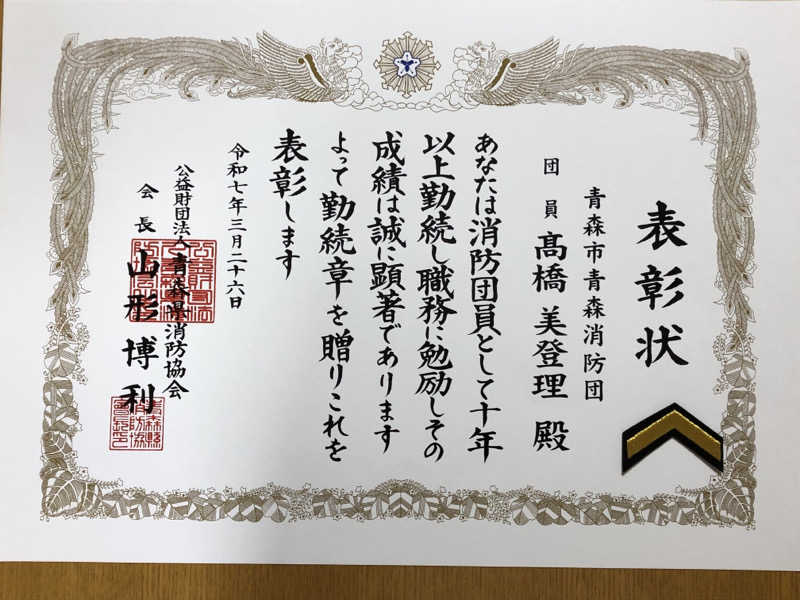 表彰状
青森市青森消防団
団員 髙橋 美登理 殿
あなたは消防団員として十年
以上勤続し職務に勉励しその
成績は誠に顕著であります
よって勤続章を贈りこれを
表彰します
令和七年三月二十六日
公益財団法人青森県消防協会
会長 山形博利